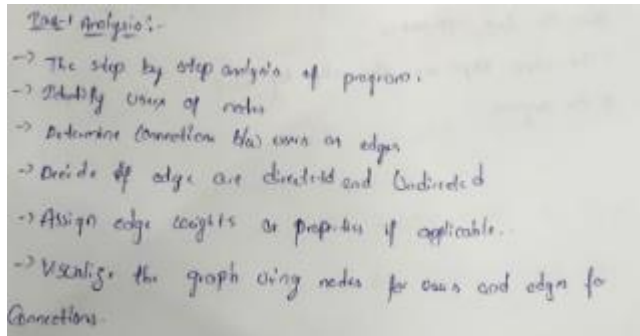 Analysis:-
-> The step by step analysis of program.
-> Identify users of nodes
-> Determine Connections b/w users as edges
-> Decide if edge are directed and Undirected
-> Assign edge weights or properties if applicable.
-> Visualize the graph using nodes for users and edges for
Connections.